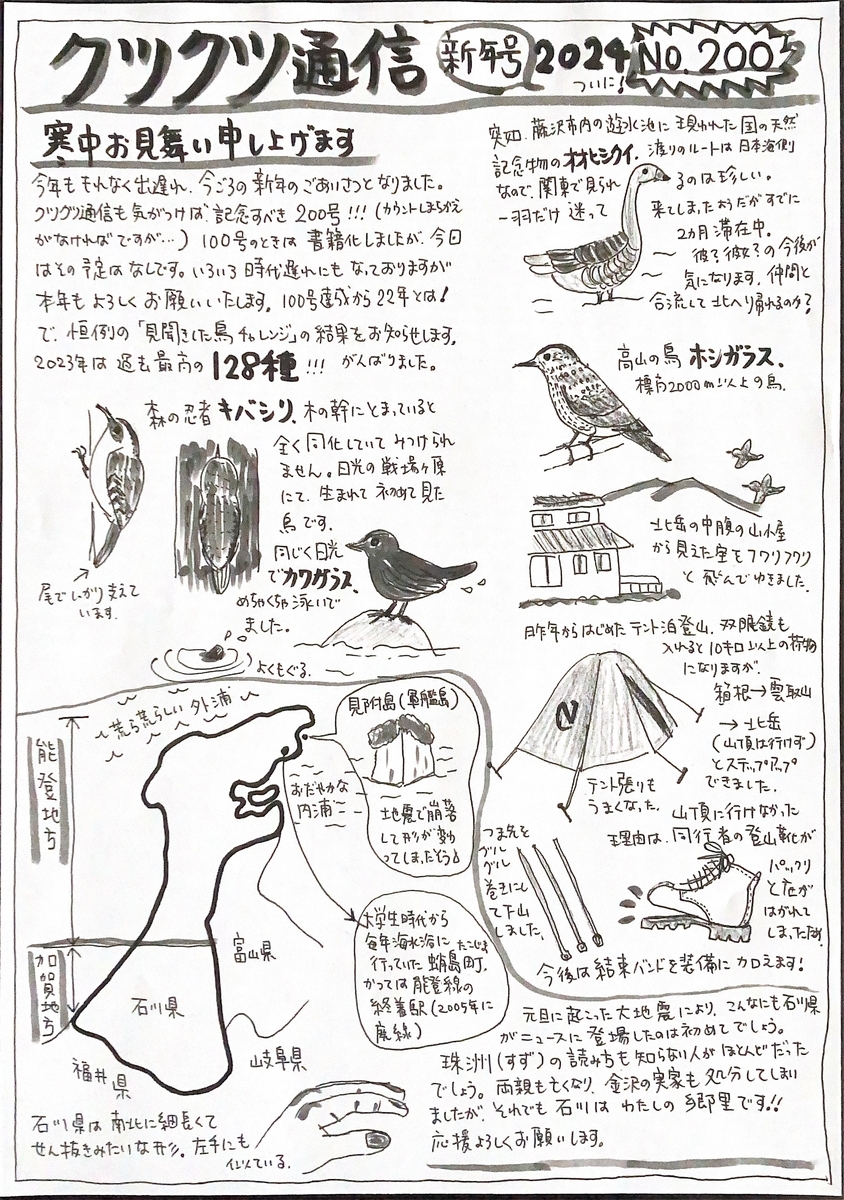 クツクツ通信
新年号
2024
ついに!
No.200
寒中お見舞い申し上げます
今年もそれなく出遅れ、今ごろの新年のごあいさつとなりました。
クツクツ通信も気がつけば、記念すべき200号!!!(カウントしまちがえ
がなければですが…)100号のときは書籍化しましたが、今回
はその予定はなしです。いろいろ時代遅れにもなっておりますが
本年もよろしくお願いいたします。100号達成から22年とは!
で、恒例の「見聞きした鳥チャレンジ」の結果をお知らせします。
2023年は過去最高の128種!!!がんばりました。
森の忍者キバシリ、木の幹にとまっていると
全く同化していてみつけられ
ません。日光の戦場ヶ原
にて、生まれて初めて見た
鳥です。
尾でしっかり支えて
います。
同じく日光
でカワガラス、
めちゃくちゃ泳いで
ました。
よくもぐる。
突如、藤沢市内の遊水池に現われた国の天然
記念物のオオヒシクイ、渡りのルートは日本海側
なので、関東で見られるのは珍しい。
一羽だけ迷って来てしまったようだがすでに
2カ月滞在中。
彼?彼女?の今後が
気になります。仲間と
合流して北へ帰れるのか?
高山の鳥ホシガラス、
標高2000m以上の鳥。
北岳の中腹の山小屋
から見えた空をフワリフワリ
と飛んでゆきました。
昨年からはじめたテント泊登山、双眼鏡も
入れると10キロ以上の荷物
になりますが、
箱根→雲取山
→北岳
(山頂は行けず)
とステップアップ
できました。
テント張りも
うまくなった。
山頂に行けなかった
理由は、同行者の登山靴が
パックリ
と底が
はがれて
しまったため
つま先を
グル
グル
巻きにし
て下山
しました。
今後は結束バンドを装備に加えます!
荒ら荒らしい外浦
能登地方
加賀地方
見附島(軍艦島)
地震で崩落
して形が変わ
ってしまったそう
おだやかな
内浦
大学生時代から
毎年海水浴に
行っていた蛸島町。
たこじま
かつては能登線の
終着駅(2005年に
廃線)
富山県
石川県
福井県
岐阜県
石川県は南北に細長くて
せん抜きみたいな形。左手にも
似ている。
元旦に起こった大地震により、こんなにも石川県
がニュースに登場したのは初めてでしょう。
珠洲(すず)の読みちも知らない人がほとんどだった
でしょう。両親も亡くなり、金沢の実家も処分してしまい
ましたが、それでも石川はわたしの郷里です!!
応援よろしくお願いします。